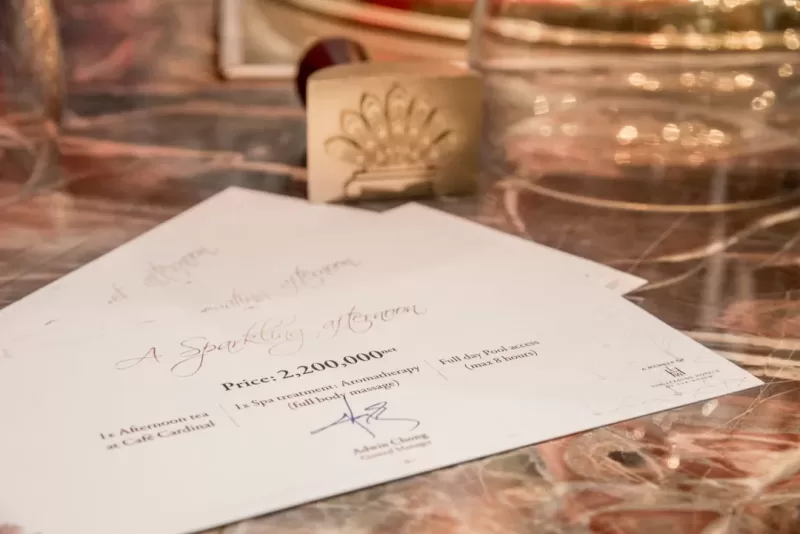 A Sparkling afternoon
Price: 2,200,000net
1x Afternoon tea
at Café Cardinal
1x Spa treatment: Aromatherapy
(full body massage)
Full day Pool access
(max 8 hours)
Adwin Chong
General Manager
A MEMBER OF